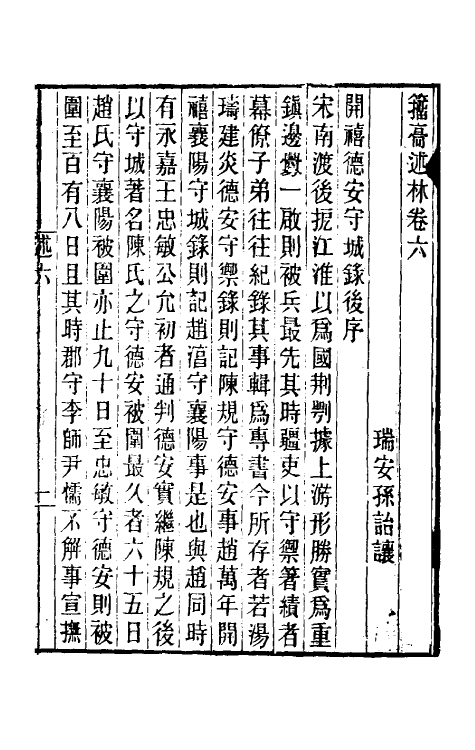 籀廎述林卷六
瑞安孫詒讓
開禧德安守城錄後序
宋南渡後扼江淮以爲國荆鄂據上游形勝實爲重
鎭邊釁一啟則被兵最先其時疆吏以守禦著績者
幕僚子弟往往紀錄其事輯爲專書今所存者若湯
璹建炎德安守禦錄則記陳規守德安事趙萬年開
禧襄陽守城錄則記趙淳守襄陽事是也與趙同時
有永嘉王忠敏公允初者通判德安實繼陳規之後
以守城著名陳氏之守德安被圍最久者六十五日
趙氏守襄陽被圍亦止九十日至忠敏守德安則被
圍至百有八日且其時郡守李師尹懦不解事宣撫
述六
一